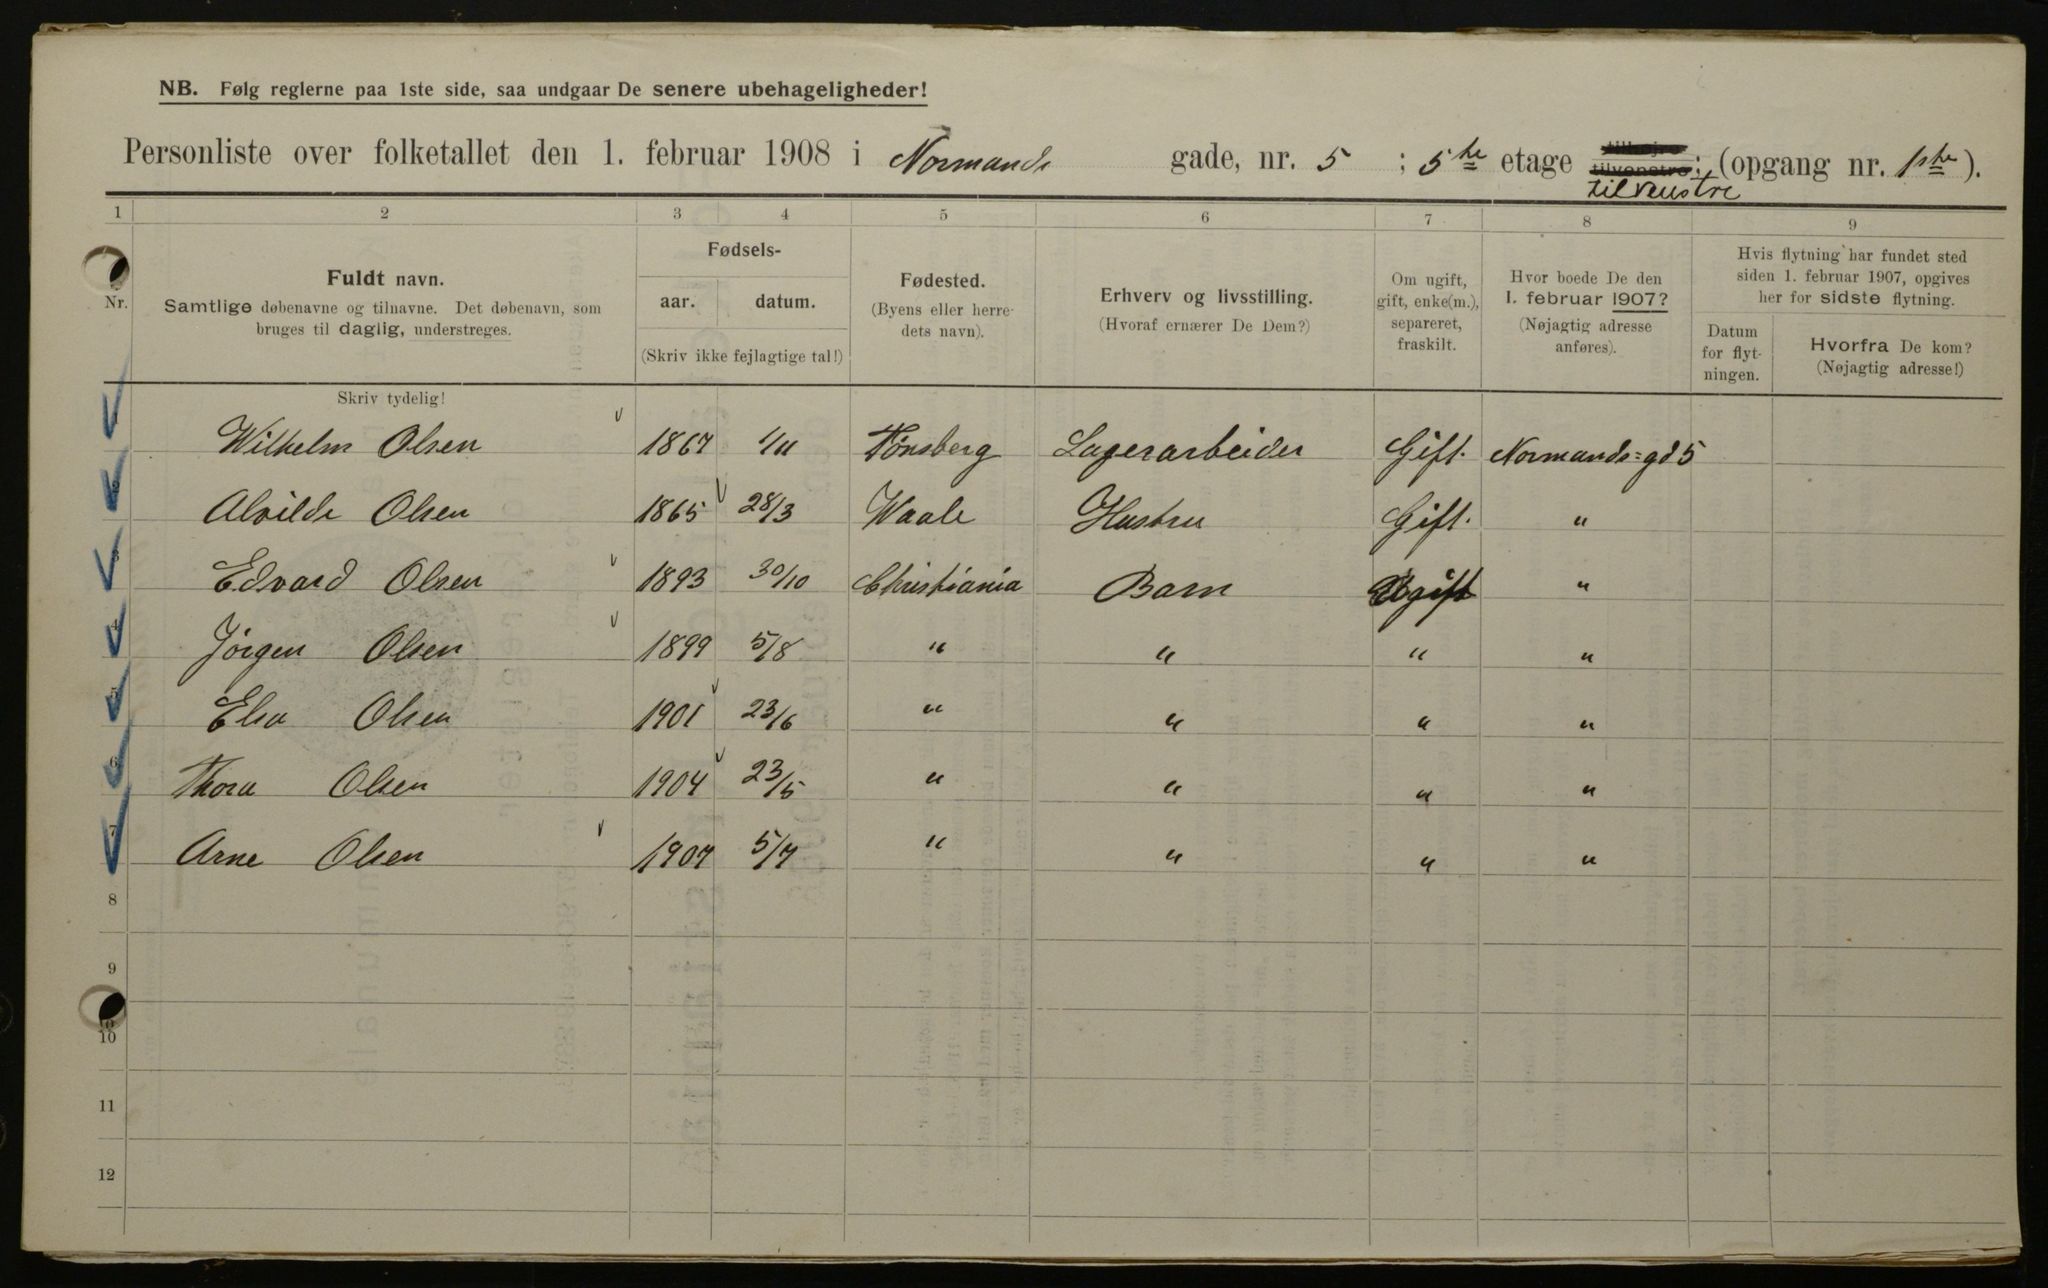 NB. Følg reglerne paa 1ste side, saa undgaar De senere ubehageligheder!
Personliste over folketallet den 1. februar 1908 i Normands gade, nr. 5 ; 5te etage tilhøjre tilvenstre; (opgang nr. 1ste).
tilvenstre
1 2 3 4 5 6 7 8 9
Nr.
Fuldt navn.
Samtlige døbenavne og tilnavne. Det døbenavn, som
bruges til daglig, understreges.
Fødsels-
aar. datum.
(Skriv ikke fejlagtige tal!)
Fødested.
(Byens eller herre-
dets navn).
Erhverv og livsstilling.
(Hvoraf ernærer De Dem?)
Om ugift,
gift, enke(m.),
separeret,
fraskilt.
Hvor boede De den
1. februar 1907?
(Nøjagtig adresse
anføres).
Hvis flytning har fundet sted
siden 1. februar 1907, opgives
her for sidste flytning.
Datum
for flyt-
ningen.
Hvorfra De kom?
(Nøjagtig adresse!)
Skriv tydelig!
Wilhelm Olsen 1867 1/11 Tønsberg Lagerarbeider Gift. Normands=gd 5
2 Alvilde Olsen 1865 28/3 Waale Hustru Gift. "
3 Edvard Olsen 1893 30/10 Christiania Barn Ugift "
4 Jørgen Olsen 1899 5/8 " " " "
5 Elsa Olsen 1901 23/6 " " " "
6 Thora Olsen 1904 23/5 " " " "
7 Arne Olsen 1907 5/7 " " " "
8
9
10
10
11
12